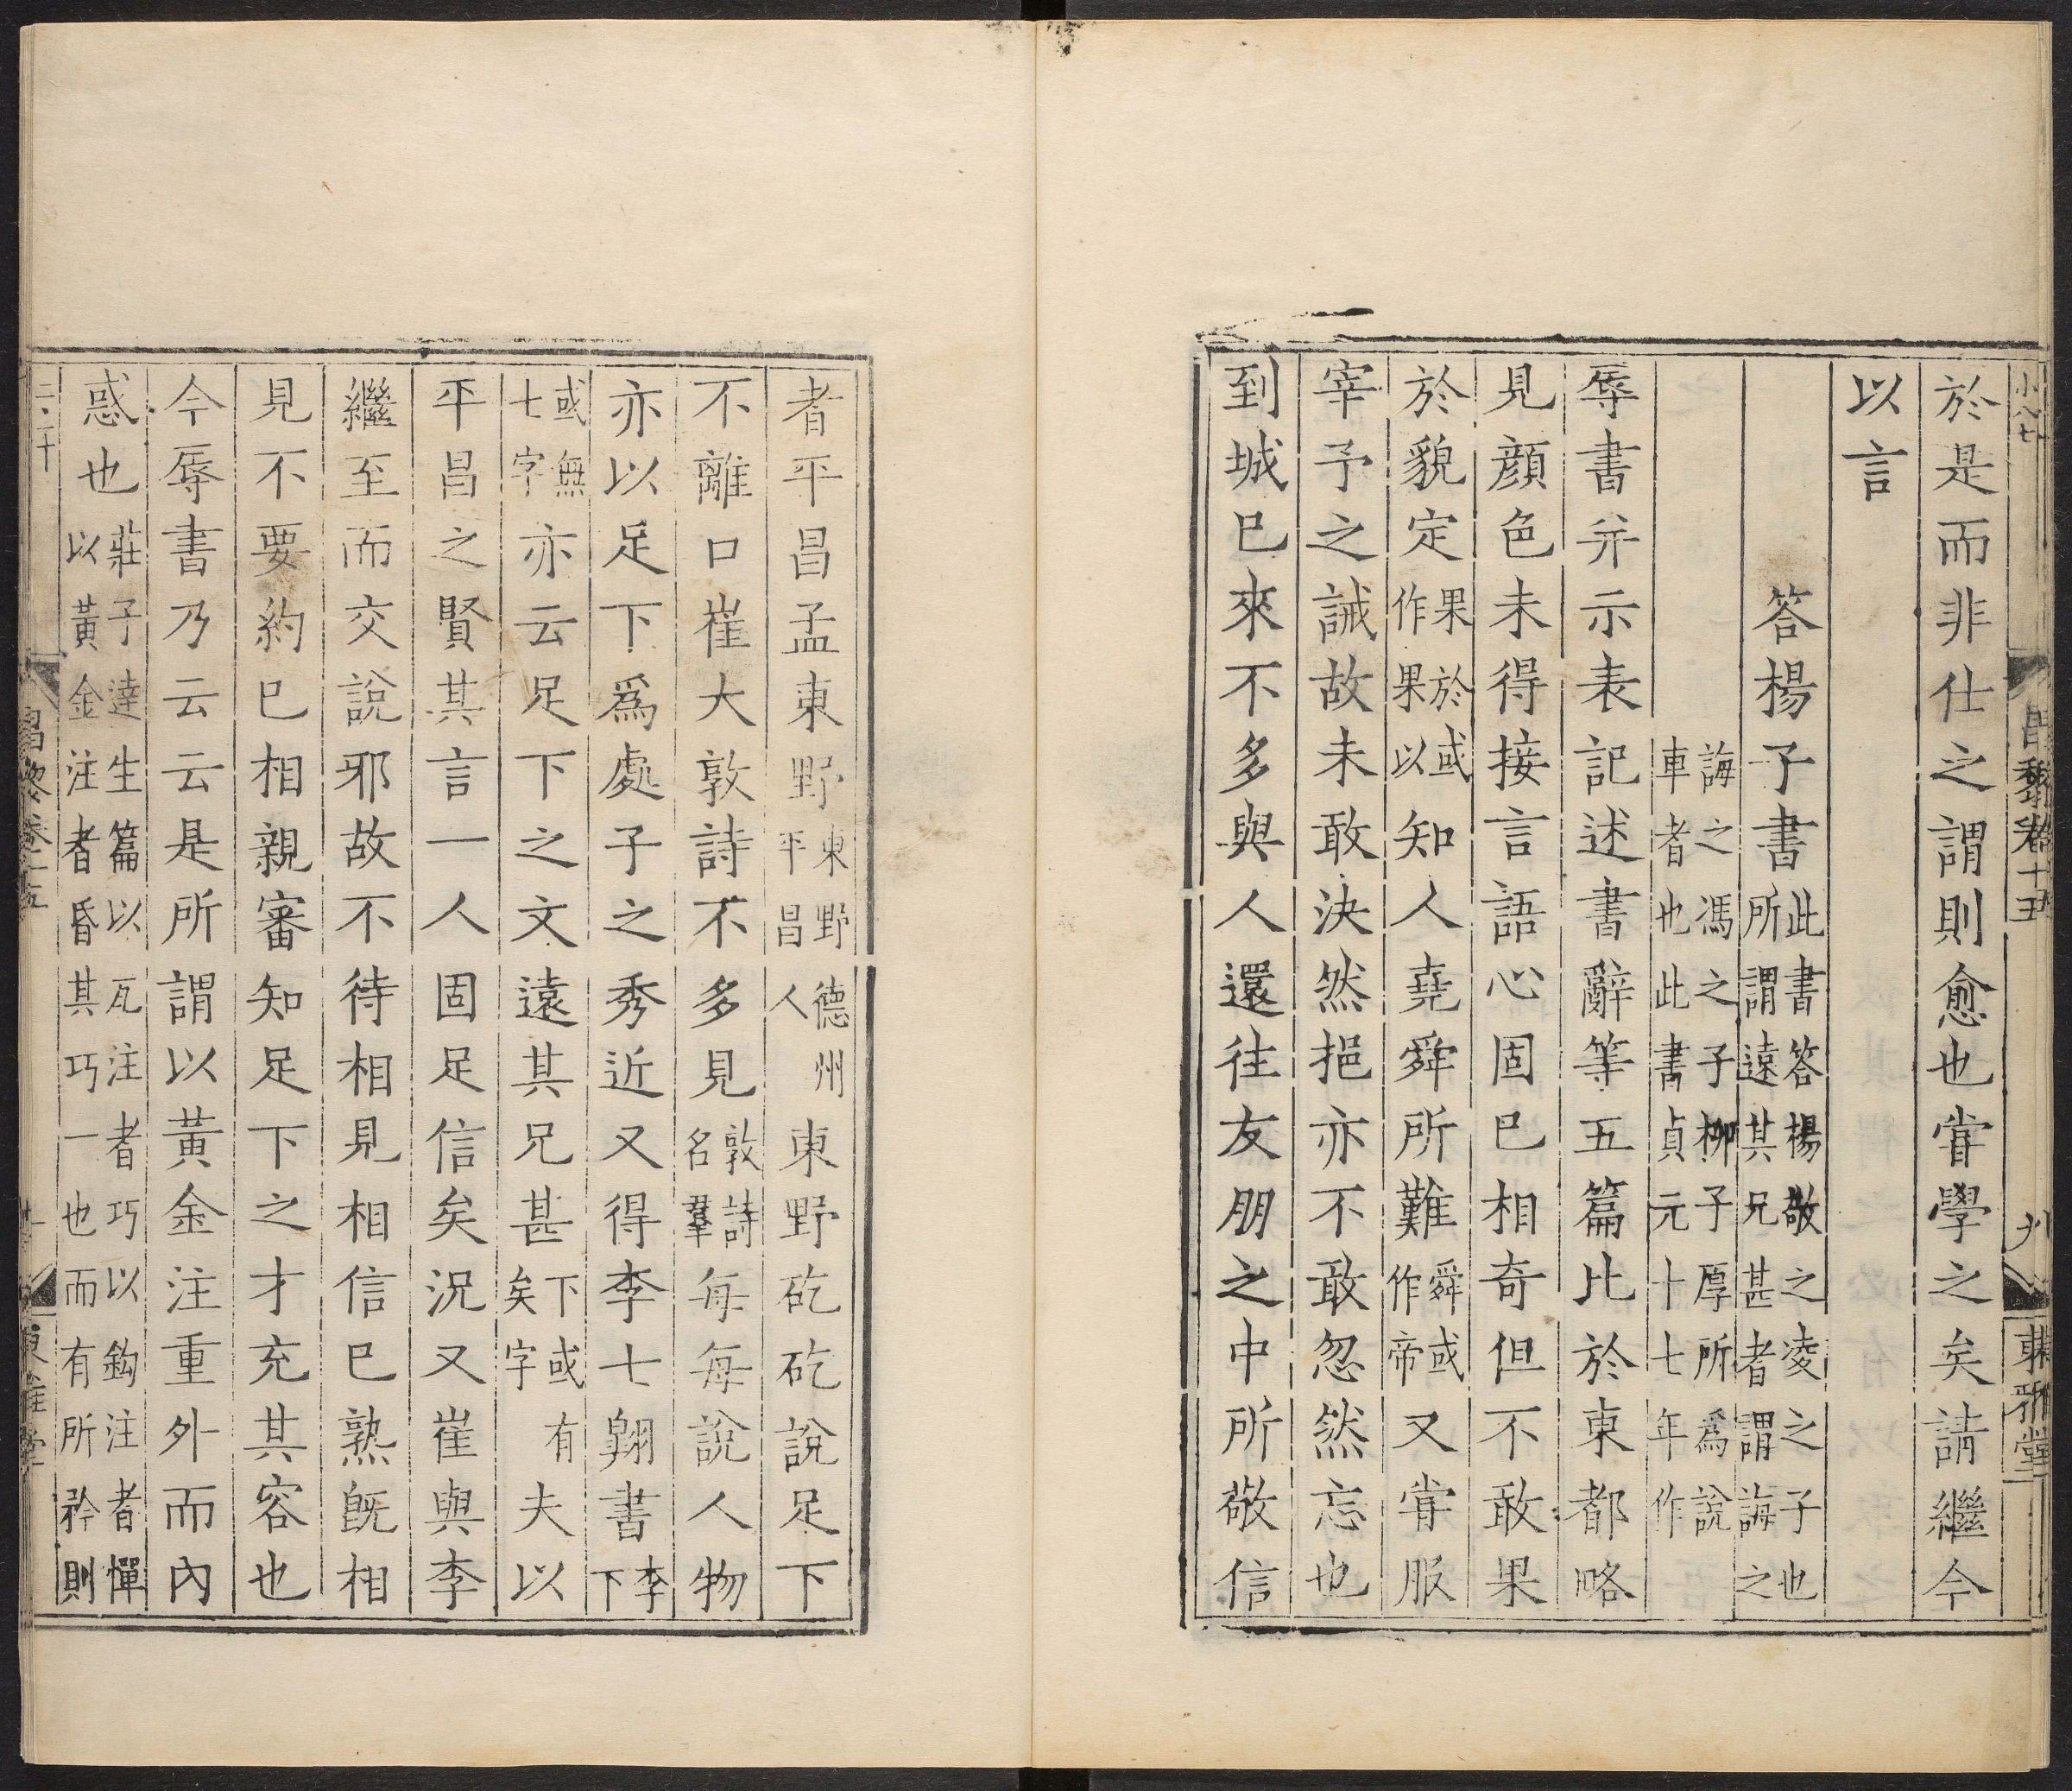 小八七
昌黎卷十五
九
東雅堂
於是而非仕之謂則愈也甞學之矣請繼今
以言
答楊子書此書答楊敬之凌之子也所謂遠其兄甚者謂誨之
誨之馮之子柳子厚所爲說車者也此書貞元十七年作
辱書并示表記述書辭等五篇比於東都略
見顔色未得接言語心固已相奇但不敢果
於貌定果於或作果以知人堯舜所難舜或作帝又甞服
宰予之誡故未敢決然挹亦不敢忽然忘也
到城已來不多與人還往友朋之中所敬信
者平昌孟東野東野德州平昌人東野矻矻說足下
不離口崔大敦詩不多見敦詩名羣每每說人物
亦以足下爲處子之秀近又得李七翺書李下
或無七字亦云足下之文遠其兄甚下或有矣字夫以
平昌之賢其言一人固足信矣況又崔與李
繼至而交說邪故不待相見相信已熟旣相
見不要約已相親審知足下之才充其容也
今辱書乃云云是所謂以黃金注重外而內
惑也莊子達生篇以瓦注者巧以鈎注者憚以黃金注者昏其巧一也而有所矜則
昌黎卷十五
東雅堂